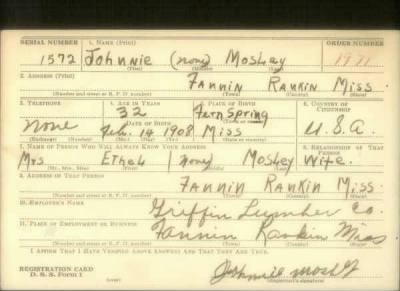 SERIAL NUMBER 1. NAME (Print) ORDER NUMBER
1572 Johnnie (none) Mosley
(First) (Middle) (Last)
2. ADDRESS (Print)
Fannin Rankin Miss.
(Number and street or R. F. D. number) (Town) (County) (State)
3. TELEPHONE 4. AGE IN YEARS 5. PLACE OF BIRTH 6. COUNTRY OF CITIZENSHIP
32 Fern Spring
DATE OF BIRTH
None 14 1908 Miss U.S.A.
(Exchange) (Number) (Mo.) (Day) (Yr.) (State or country)
7. NAME OF PERSON WHO WILL ALWAYS KNOW YOUR ADDRESS 8. RELATIONSHIP OF THAT PERSON
Mrs Ethel (none) Mosley Wife.
(Mr., Mrs., Miss) (First) (Middle) (Last)
9. ADDRESS OF THAT PERSON
Fannin Rankin Miss.
(Number and street or R. F. D. number) (Town) (County) (State)
10. EMPLOYER'S NAME
Griffin Lumber Co.
11. PLACE OF EMPLOYMENT OR BUSINESS
Fannin Rankin Miss
(Number and street or R. F. D. number) (Town) (County) (State)
I AFFIRM THAT I HAVE VERIFIED ABOVE ANSWERS AND THAT THEY ARE TRUE.
REGISTRATION CARD
D. S. S. Form 1 (over) (Registrant's signature)
Johnnie Mosley